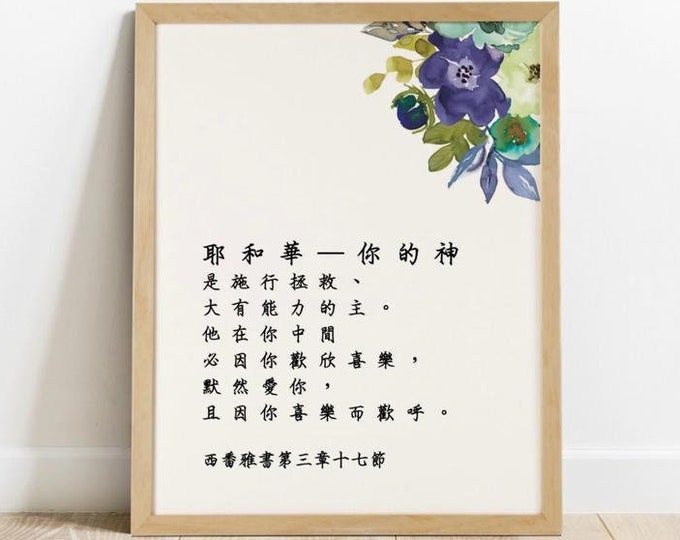 耶和華—你的神
是施行拯救、
大有能力的主。
他在你中間
必因你歡欣喜樂，
默然愛你，
且因你喜樂而歡呼。
西番雅書第三章十七節